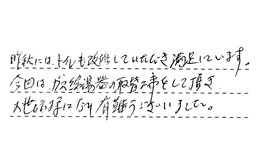 昨秋には、トイレも改修していただき満足しています。
今回は、ガス給湯器の取替工事をして頂き
大世話様になり有難うございました。